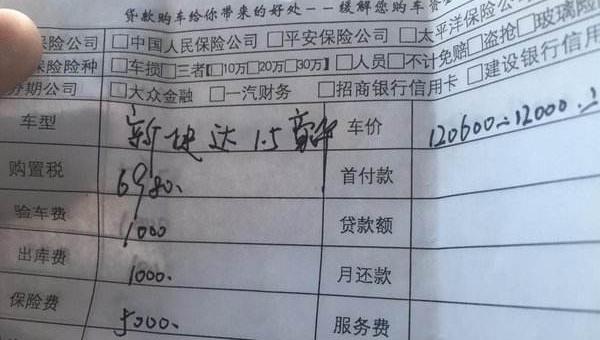 贷款购车给你带来的好处--缓解您购车资
保险公司 □中国人民保险公司 □平安保险公司 □太平洋保险公司
保险险种 □车损□三者【□10万□20万□30万】□人员□不计免赔□盗抢□玻璃险
分期公司 □大众金融 □一汽财务 □招商银行信用卡 □建设银行信用
车型 新捷达1.5 车价 120600-12000
购置税 6980. 首付款
验车费 1000 贷款额
出库费 1000. 月还款
保险费 5000. 服务费